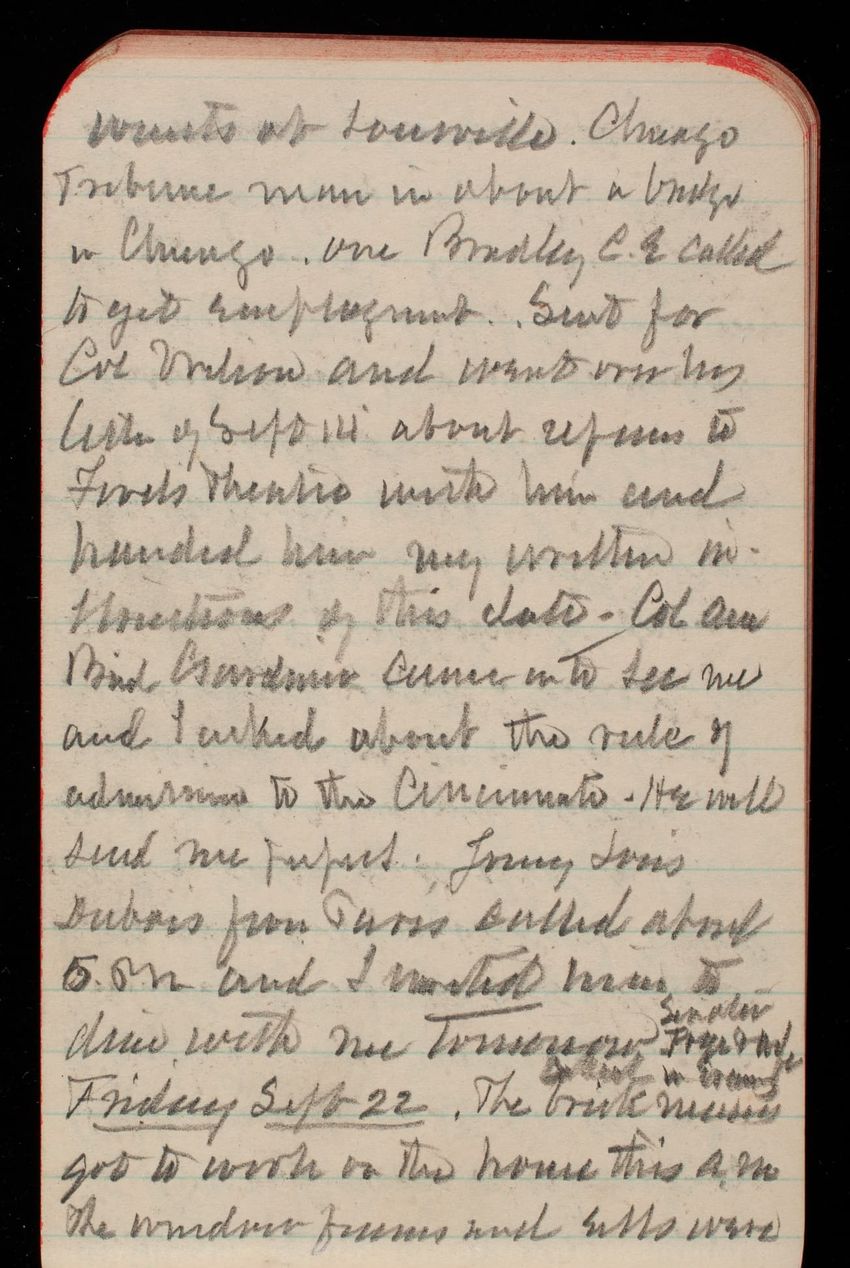 wants at Louisville. Chicago
Tribune man in about a bridge
in Chicago. one Bradley C.E called
to get employment. Sent for
Col Wilson and went over his
letter of Sept 14 about repairs to
Fords Theatre with him and
handed him my written in-
structions of this date - Col
Bird Gardner came in to see me
and I asked about the rule of
admission to the Cincinnati - He will
send me papers. Young Louis
Dubois from Paris called about
5. Pm and I invited him to
dine with me tomorrow
Senator
Friday Sept 22. The brick masons
got to work on the house this a.m
The window frames and sills were